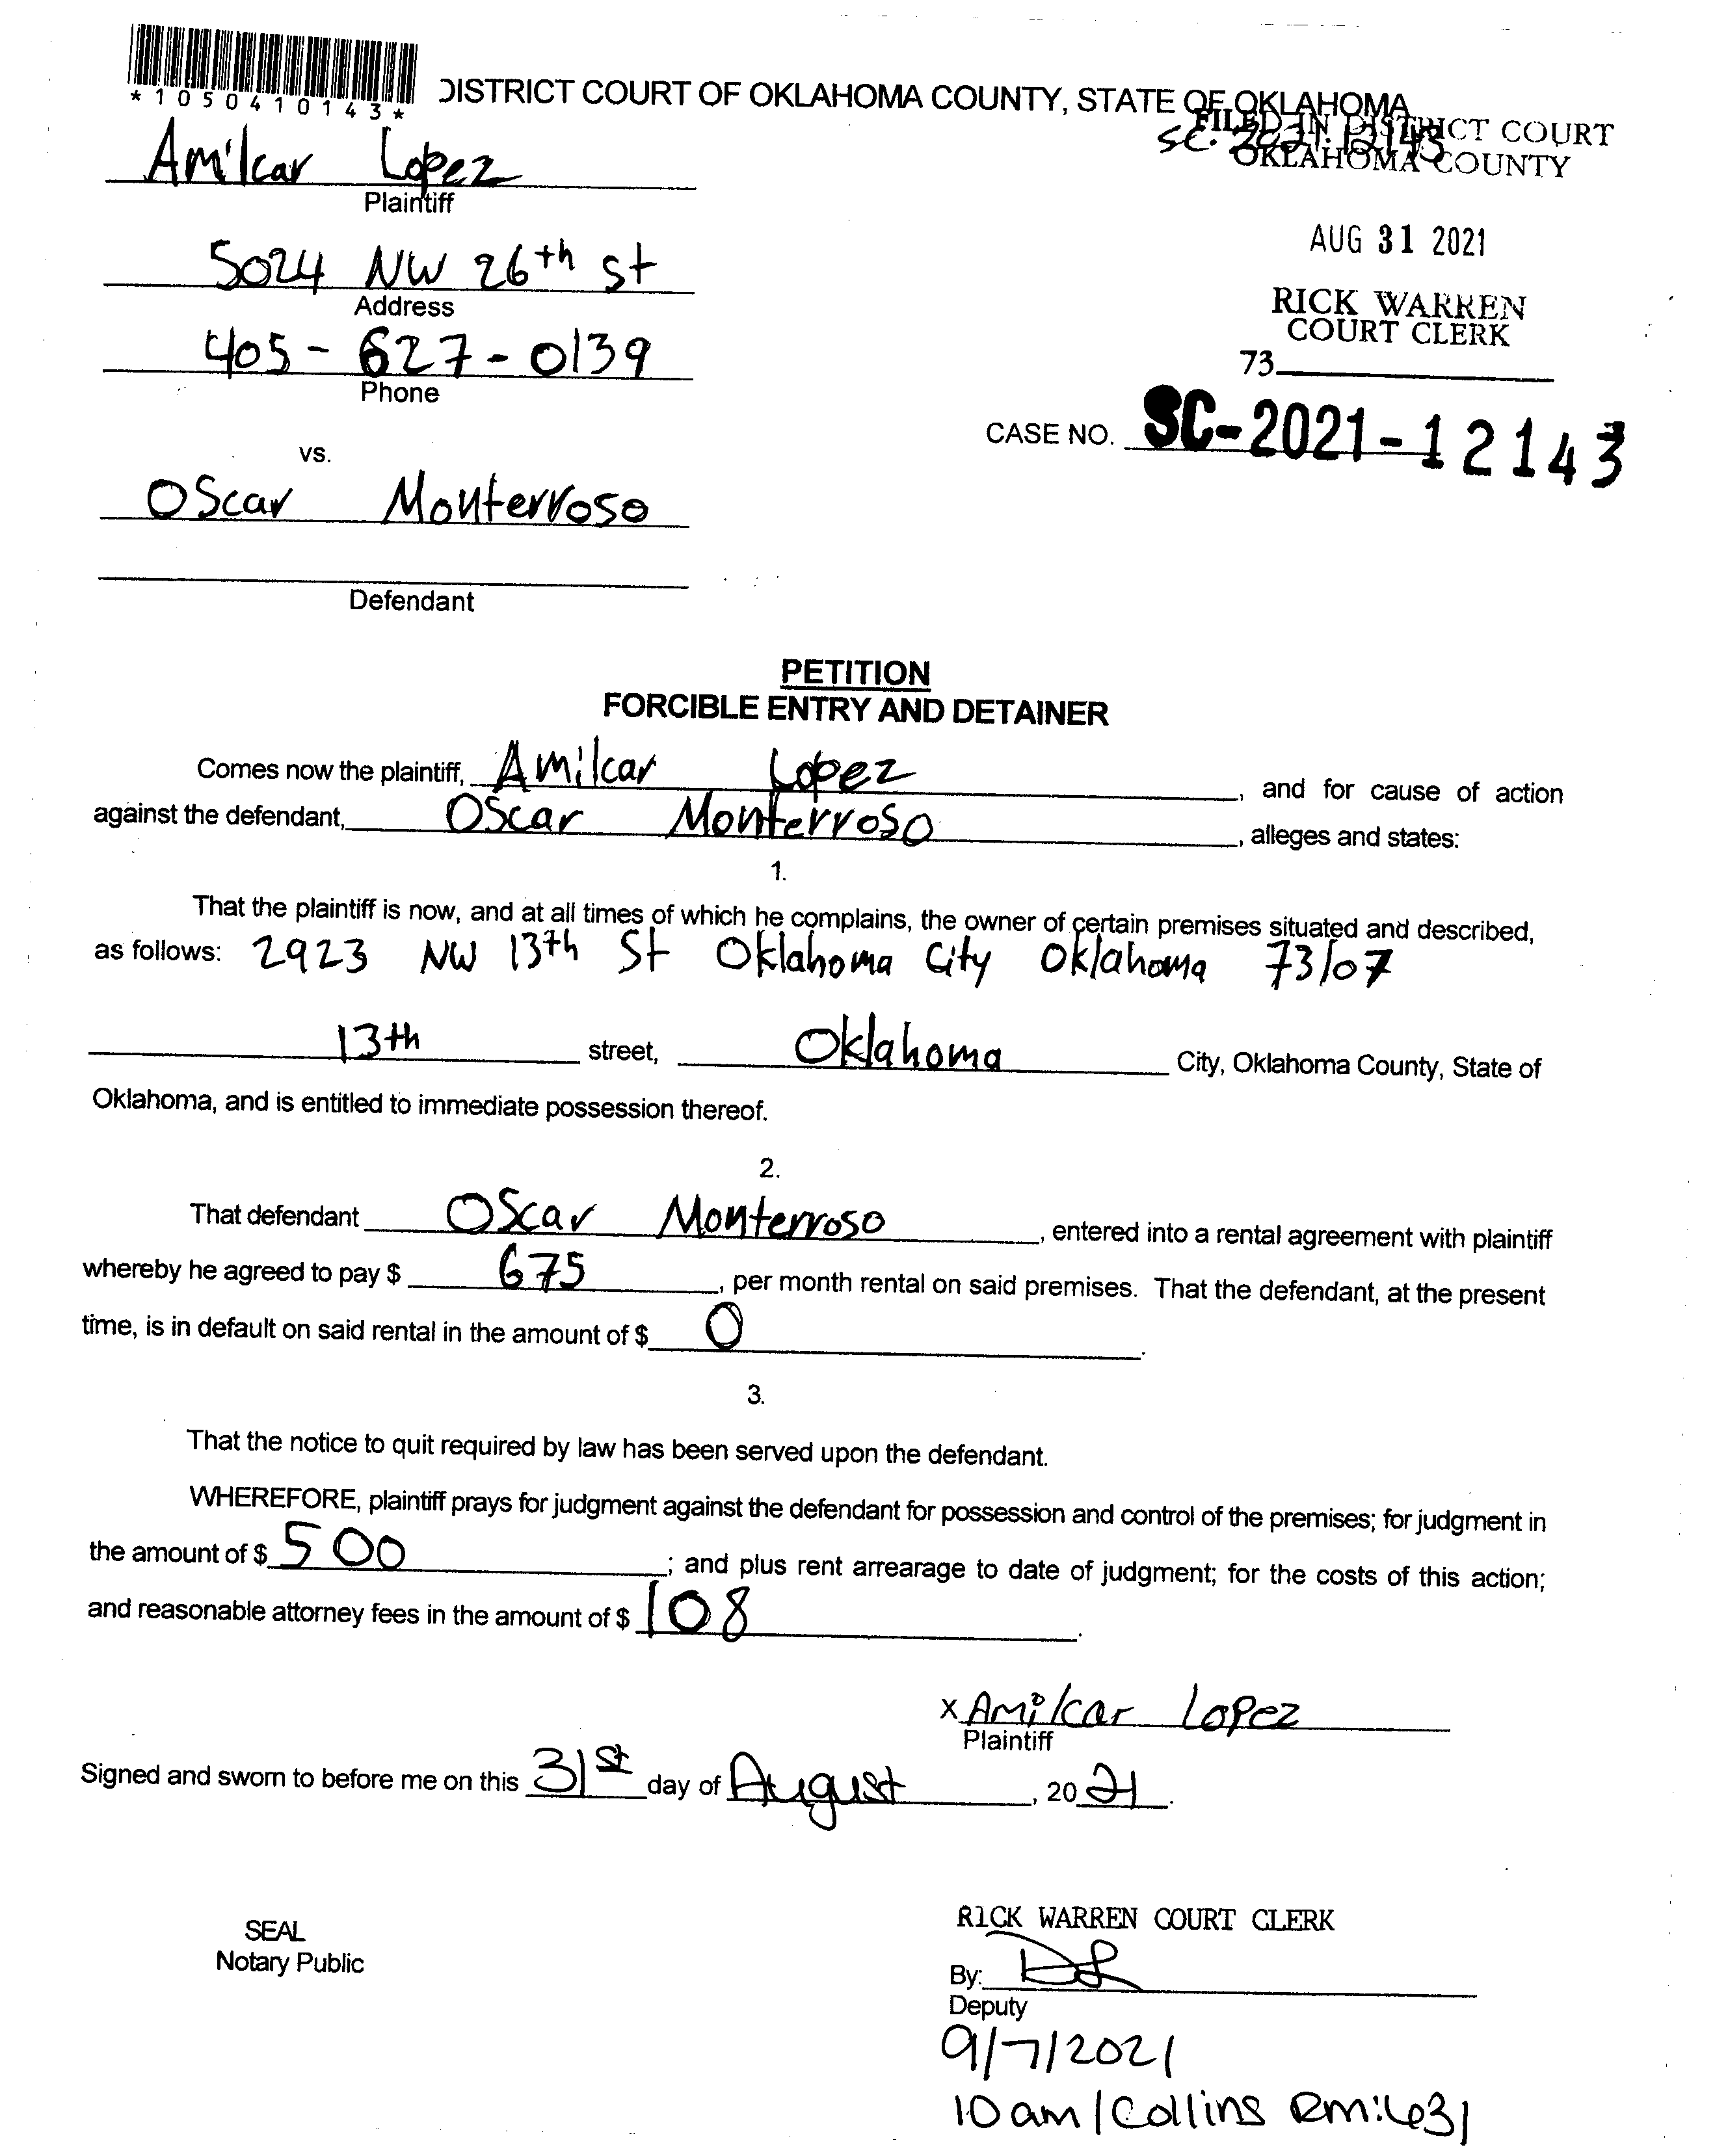 *1050410143*
DISTRICT COURT OF OKLAHOMA COUNTY, STATE OF OKLAHOMA
FILED IN DISTRICT COURT
SC-2021-12143
OKLAHOMA COUNTY
Amilcar Lopez
Plaintiff
AUG 31 2021
5024 NW 26th St
Address
RICK WARREN
COURT CLERK
405-627-0139
Phone
73
CASE NO. SC-2021-12143
vs.
Oscar Monterroso
Defendant
PETITION
FORCIBLE ENTRY AND DETAINER
Comes now the plaintiff, Amilcar Lopez, and for cause of action
against the defendant, Oscar Monterroso, alleges and states:
1.
That the plaintiff is now, and at all times of which he complains, the owner of certain premises situated and described,
as follows: 2923 NW 13th St Oklahoma City Oklahoma 73107
13th street, Oklahoma City, Oklahoma County, State of
Oklahoma, and is entitled to immediate possession thereof.
2.
That defendant Oscar Monterroso, entered into a rental agreement with plaintiff
whereby he agreed to pay $ 675, per month rental on said premises. That the defendant, at the present
time, is in default on said rental in the amount of $ 0.
3.
That the notice to quit required by law has been served upon the defendant.
WHEREFORE, plaintiff prays for judgment against the defendant for possession and control of the premises; for judgment in
the amount of $ 500; and plus rent arrearage to date of judgment; for the costs of this action;
and reasonable attorney fees in the amount of $ 108.
x Amilcar Lopez
Plaintiff
Signed and sworn to before me on this 31st day of August, 2021.
RICK WARREN COURT CLERK
SEAL
Notary Public
By:
Deputy
9/7/2021
10am/Collins Rm:431